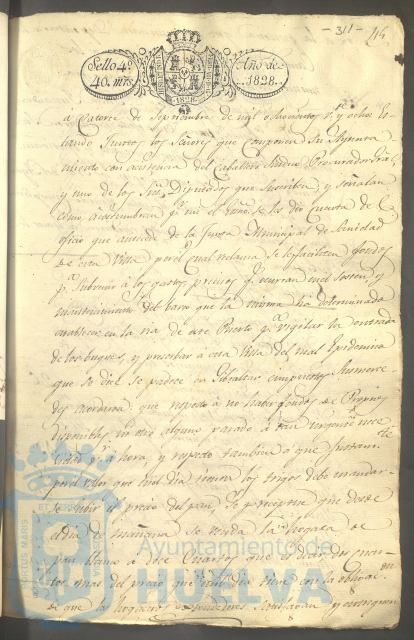 - 311 -
Sello 4º
40. mrs.
Año de
1828.
1828.
á Catorce de Septiembre de mil ochocientos vte y ocho. Es-
tando Juntos los Señores que componen Su Ayunta
miento con asistencia del Caballero Sindico Procurador Gral
y uno de los Sres Diputados que Suscriben, y señalan
como acostumbran pr mi el Esno. se les dio Cuenta de
oficio que antecede de la Junta Municipal de Sanidad
de esta Villa por el cual reclama se le faciliten fondos
pa Subvenir á los gastos precisos qe ocurran en el Sosten, y
mantenimiento del barco que la misma ha determinado
establecer en la ria de este Puerto pa vigilar la entrada
de los buques, y precaber a esta Villa del mal Epidemico
que se dice se padece en Gibraltar
acordaron: que respecto á no haber fondos de Propios
disponibles, ni otro alguno para tan urgente nece
sidad á hora, y respecto tambien á que
por el valor que en el dia tienen los trigos debe mandar-
se subir el precio del pan, Se que desde
el dia de mañana se venda la hogaza de
pan llano á doce Cuartos que es dos cuar-
tos mas del precio que en el dia tiene con la obligaon
de que los hacedores, vendedores
Ayuntamiento de
HUELVA
PORTUS MARIS